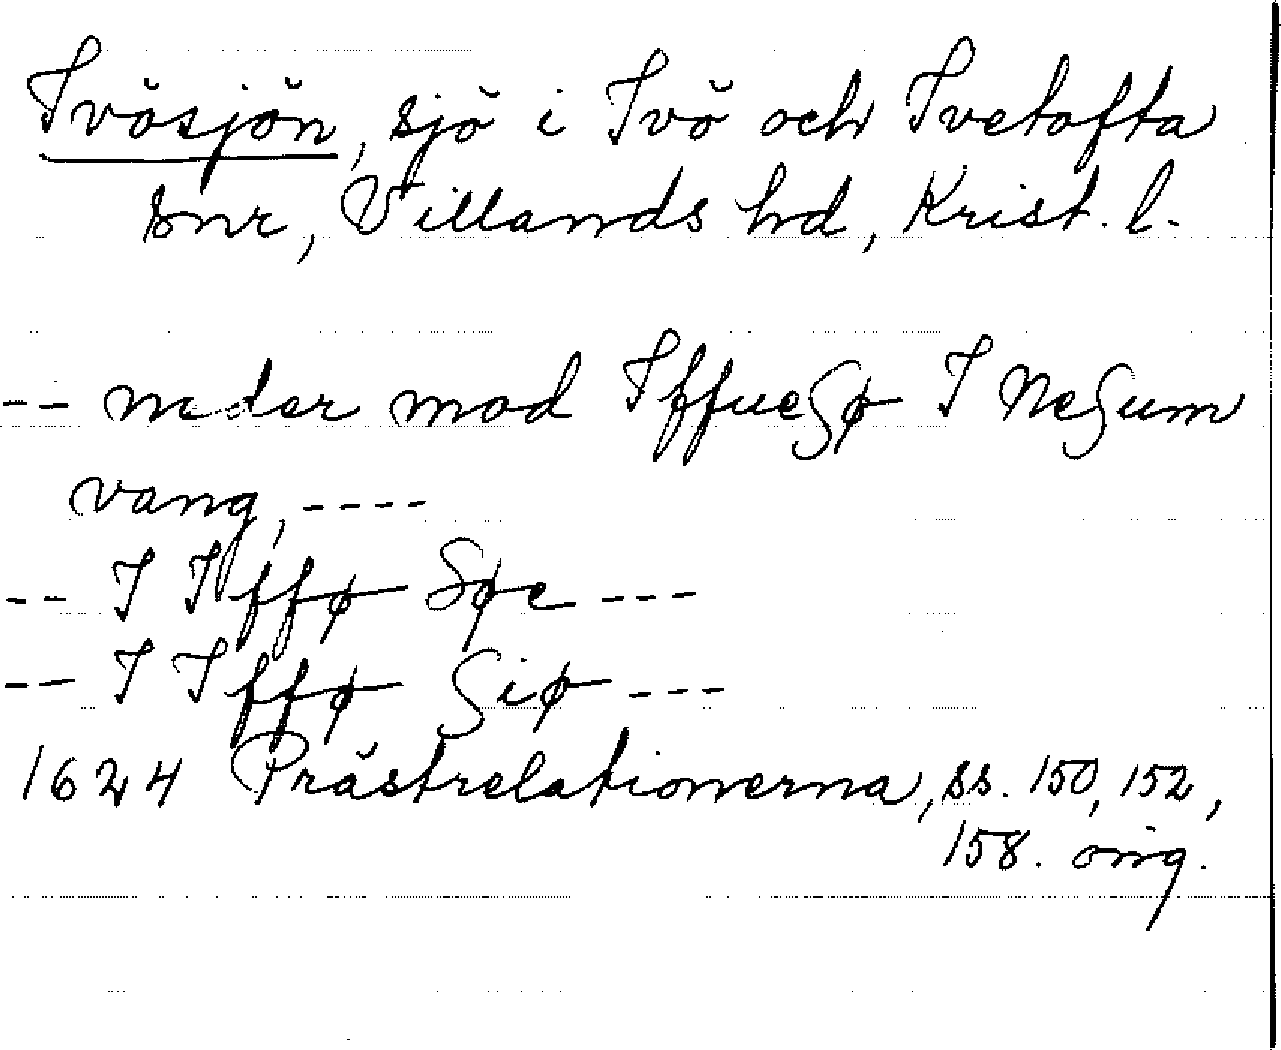 Ivösjön, sjö i Ivö och Ivetofta
snr, Villands hd, Krist. l.
-- neder mod IffueSø I NeSum
vang, ----
-- I Iffø Søe ---
-- I Iffø Siø ---
1624 Prästrelationerna, ss. 150, 152,
158. orig.